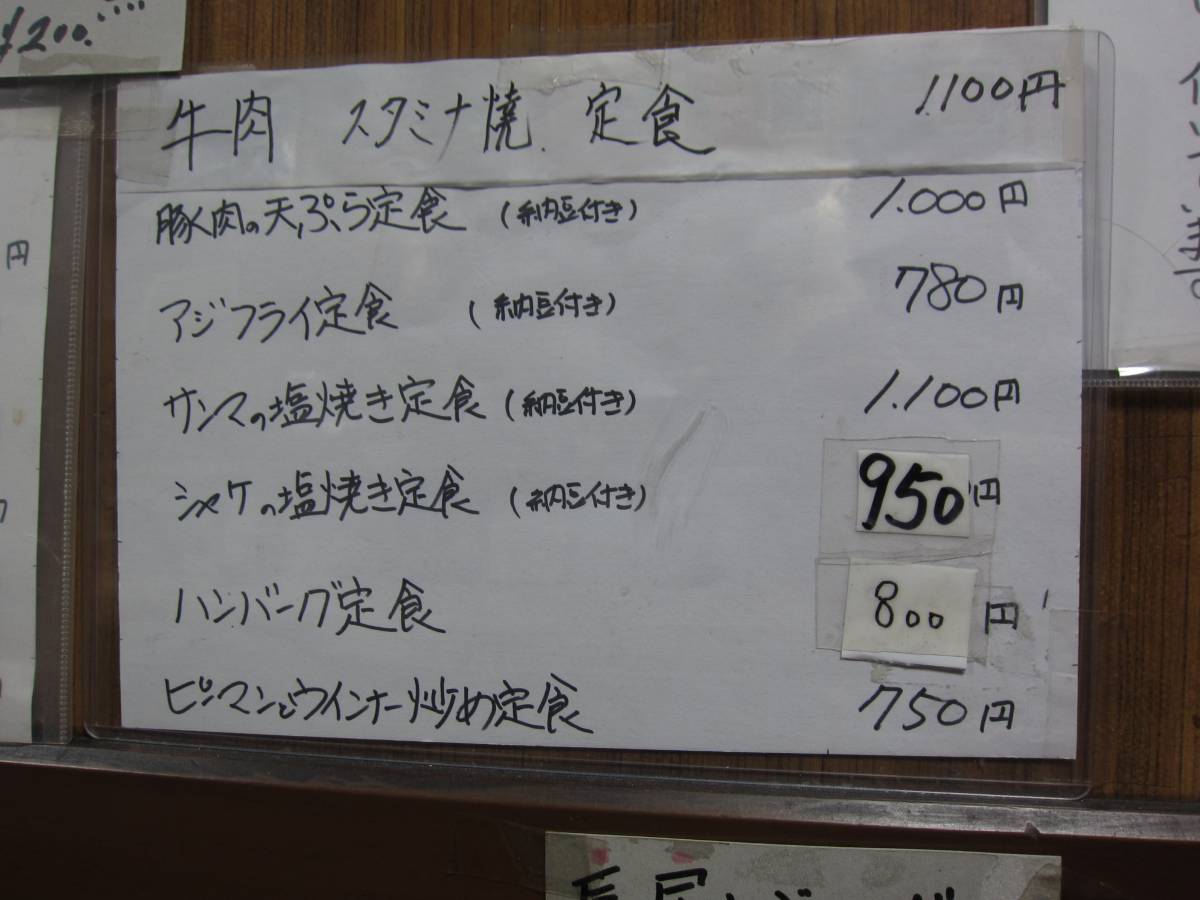 ¥200.
牛肉 スタミナ焼 定食 1.100円
豚肉の天ぷら定食 (納豆付き) 1.000円
円
アジフライ定食 (納豆付き) 780円
サンマの塩焼き定食 (納豆付き) 1.100円
シャケの塩焼き定食 (納豆付き) 950円
ハンバーグ定食 800円
ピーマンとウインナー炒め定食 750円